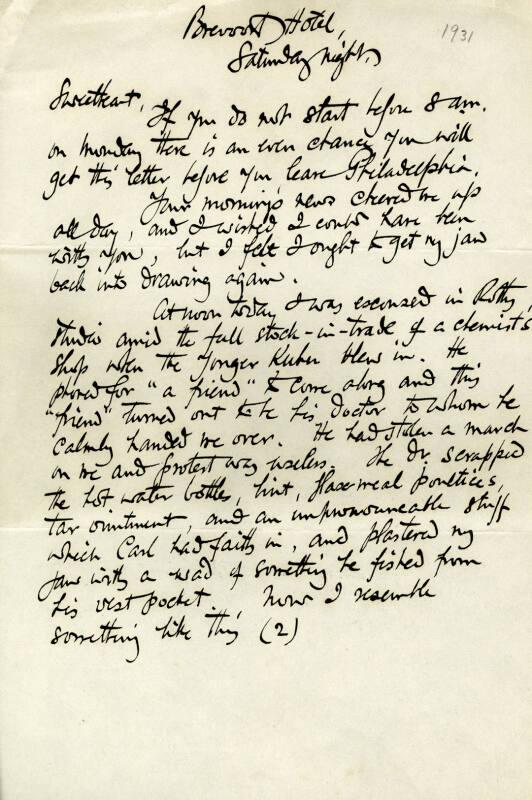 Brevoort Hotel,
1931
Saturday night.
Sweetheart,
If you do not start before 8 am.
on Monday there is an even chance you will
get this letter before you leave Philadelphia.
Your morning's news cheered me up
all day, and I wished I could have been
with you, but I felt I ought to get my jaw
back into drawing again.
At noon today I was esconzed in Roths
studio amid the full stock-in-trade of a chemist's
shop when the Yonger Kuhn blew in. He
phoned for "a friend" to come along and this
"friend" turned out to be his doctor to whom he
calmly handed me over. He had stolen a march
on me and protest was useless. The Dr. scrapped
the hot water bottles, lint, flax-meal poultices,
tar ointment, and an unpronounceable stuff
which Carl had faith in, and plastered my
jaw with a wad of something he fished from
his vest pocket. Now I resemble
something like this (2)